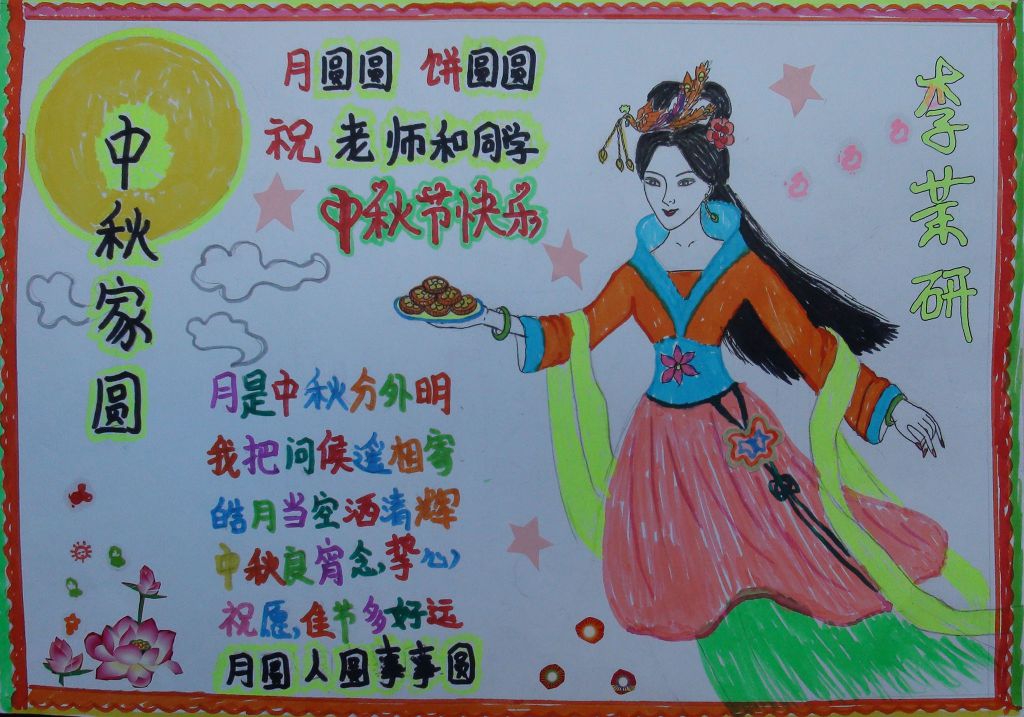 中秋家圆
月圆圆 饼圆圆
祝老师和同学
中秋节快乐
月是中秋分外明
我把问候遥相寄
皓月当空洒清辉
中秋良宵念挚心
祝愿,佳节多好运
月圆人圆事事圆
李茉研